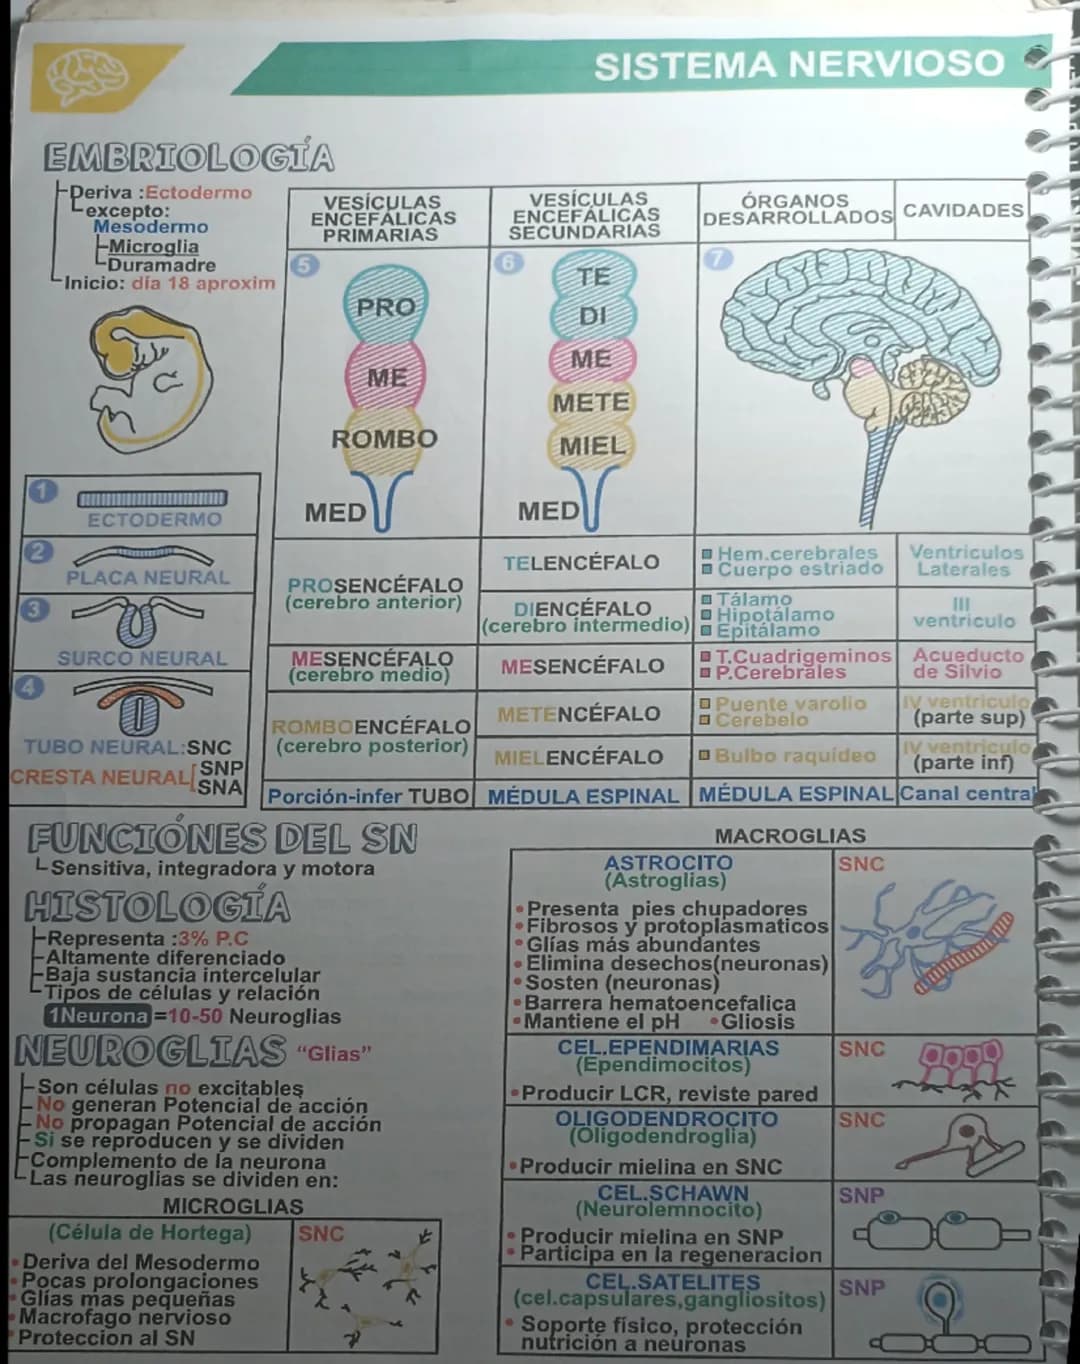 SISTEMA NERVIOSO
EMBRIOLOGÍA
Deriva :Ectodermo
excepto:
Mesodermo
Microglia
Duramadre
Inicio: día 18 aproxim
1
ECTODERMO
2
PLACA NEURAL
3
SURCO NEURAL
4
TUBO NEURAL:SNC
CRESTA NEURAL[SNP
SNA
VESÍCULAS
ENCEFÁLICAS
PRIMARIAS
VESÍCULAS
ENCEFÁLICAS
SECUNDARIAS
ÓRGANOS
DESARROLLADOS
CAVIDADES
5
PRO
ME
ROMBO
MED
6
TE
DI
ME
METE
MIEL
MED
7
PROSENCÉFALO
(cerebro anterior)
TELENCÉFALO
Hem.cerebrales
Cuerpo estriado
Ventriculos
Laterales
DIENCÉFALO
(cerebro intermedio)
Tálamo
Hipotálamo
Epitálamo
III
ventriculo
MESENCÉFALO
(cerebro medio)
MESENCÉFALO
T.Cuadrigeminos
P.Cerebrales
Acueducto
de Silvio
ROMBOENCÉFALO
(cerebro posterior)
METENCÉFALO
Puente varolio
Cerebelo
IV ventriculo
(parte sup)
MIELENCÉFALO
Bulbo raquídeo
IV ventriculo
(parte inf)
Porción-infer TUBO
MÉDULA ESPINAL
MÉDULA ESPINAL
Canal central
FUNCIÓNES DEL SN
Sensitiva, integradora y motora
HISTOLOGÍA
Representa :3% P.C
Altamente diferenciado
Baja sustancia intercelular
Tipos de células y relación
1Neurona =10-50 Neuroglias
NEUROGLIAS "Glias"
Son células no excitables
No generan Potencial de acción
No propagan Potencial de acción
Si se reproducen y se dividen
Complemento de la neurona
Las neuroglias se dividen en:
MICROGLIAS
(Célula de Hortega)
SNC
Deriva del Mesodermo
Pocas prolongaciones
Glías mas pequeñas
Macrofago nervioso
Proteccion al SN
MACROGLIAS
ASTROCITO
(Astroglias)
SNC
Presenta pies chupadores
Fibrosos y protoplasmaticos
Glías más abundantes
Elimina desechos(neuronas)
Sosten (neuronas)
Barrera hematoencefalica
Mantiene el pH •Gliosis
CEL.EPENDIMARIAS
(Ependimocitos)
SNC
Producir LCR, reviste pared
OLIGODENDROCITO
(Oligodendroglia)
SNC
Producir mielina en SNC
CEL.SCHAWN
(Neurolemnocito)
SNP
Producir mielina en SNP
Participa en la regeneracion
CEL.SATELITES
(cel.capsulares,gangliositos)
SNP
Soporte físico, protección
nutrición a neuronas